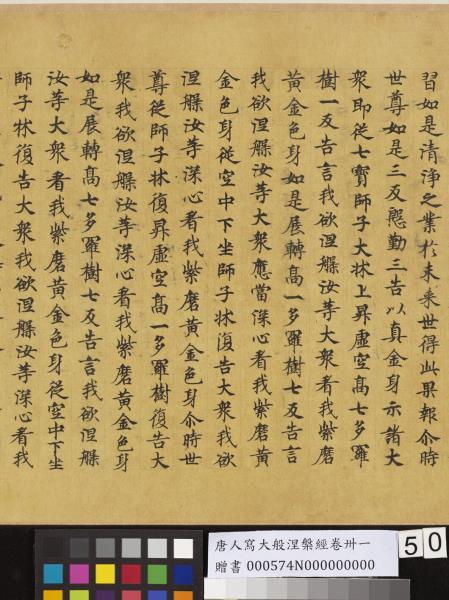 習如是清淨之業於未来世得此果報尒時
世尊如是三反慇勤三告以真金身示諸大
衆即従七寳師子大牀上昇虚空髙七多羅
樹一反告言我欲涅槃汝䓁大衆看我紫磨
黄金色身如是展轉髙一多羅樹七反告言
我欲涅槃汝䓁大衆應當深心看我紫磨黄
金色身従空中下坐師子牀復告大衆我欲
涅槃汝䓁深心看我紫磨黄金色身尒時世
尊従師子牀復昇虚空髙一多羅樹復告大
衆我欲涅槃汝䓁深心看我紫磨黄金色身
如是展轉髙七多羅樹七反告言我欲涅槃
汝䓁大衆看我紫磨黄金色身従空中下坐
師子牀復告大衆我欲涅槃汝䓁深心看我
唐人寫大般涅槃經卷卅一
贈書 000574N000000000
5 0